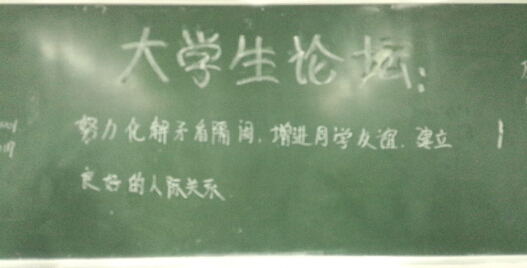 大学生论坛:
努力化解矛盾隔阂,增进同学友谊,建立
良好的人际关系